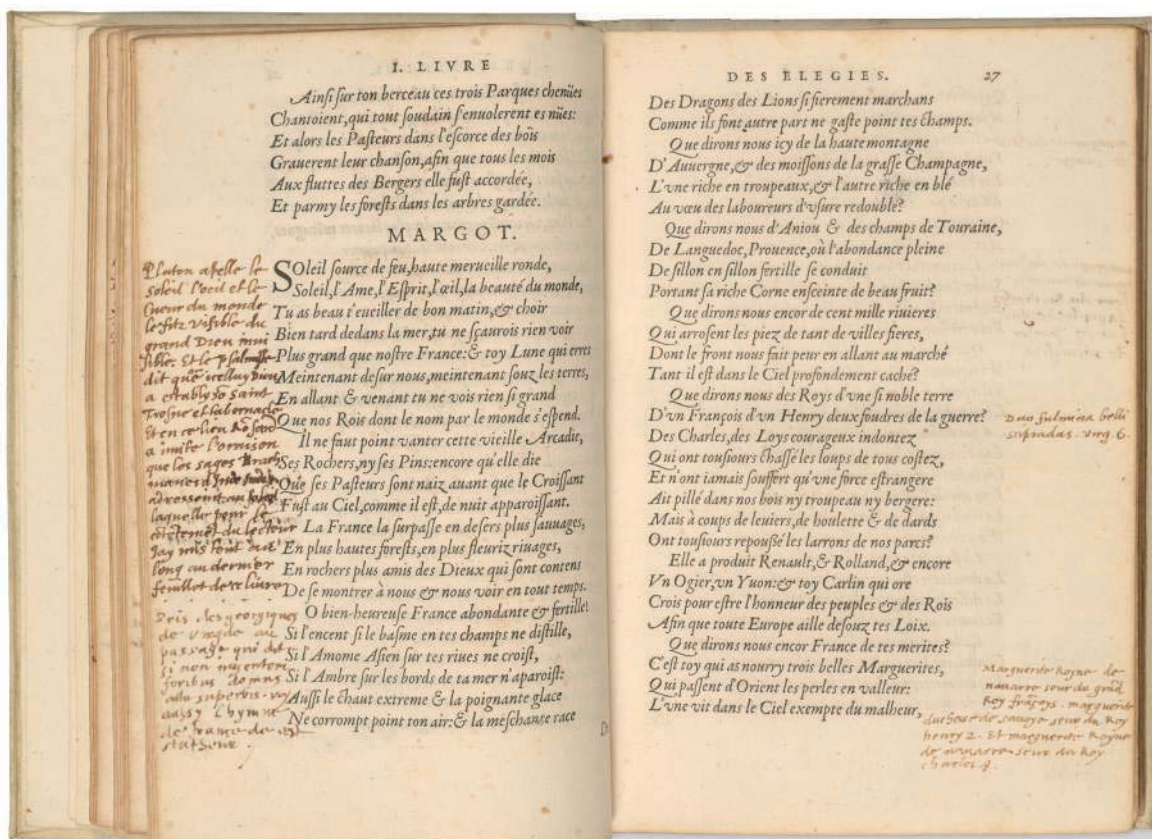 I. LIVRE
Ainsi sur ton berceau ces trois Parques chenües
Chantoient, qui tout soudain s'enuolerent es nües:
Et alors les Pasteurs dans l'escorce des bois
Grauerent leur chanson, afin que tous les mois
Aux fluttes des Bergers elle fust accordée,
Et parmy les forests dans les arbres gardée.
MARGOT.
SOleil source de feu, haute merueille ronde,
Soleil, l'Ame, l'Esprit, l'œil, la beauté du monde,
Tu as beau t'eueiller de bon matin, & choir
Bien tard dedans la mer, tu ne sçaurois rien voir
Plus grand que nostre France: & toy Lune qui erres
Meintenant desur nous, meintenant souz les terres,
En allant & venant tu ne vois rien si grand
Que nos Rois dont le nom par le monde s'espend.
Il ne faut point vanter cette vieille Arcadie,
Ses Rochers, ny ses Pins: encore qu'elle die
Que ses Pasteurs sont naiz auant que le Croissant
Fust au Ciel, comme il est, de nuit apparoissant.
La France la surpasse en desers plus sauuages,
En plus hautes forests, en plus fleuriz riuages,
En rochers plus amis des Dieux qui sont contens
De se montrer à nous & nous voir en tout temps.
O bien-heureuse France abondante & fertille!
Si l'encent si le basme en tes champs ne distille,
Si l'Amome Asien sur tes riues ne croist,
Si l'Ambre sur les bords de ta mer n'aparoist:
Aussi le chaut extreme & la poignante glace
Ne corrompt point ton air: & la meschante race
Platon apelle le
Soleil l'oeil et le
cueur du monde
le filz visible du
grand Dieu inui
sible. Et le psalmiste
dit que icelluy Dieu
a estably so saint
Trosne et tabernacle
Et en ce lieu
a imite l'oraison
que les sages Brach
manes
adressoient au soleil
laquelle pour le
cõtetemẽt du lecteur
Jay mis tout du
long au dernier
feuillet de ce liure
de
passage qui dit
si non
foribus domus
alta superbis. voy
aussy l'hymne
de france de
DES ELEGIES. 27
Des Dragons des Lions si fierement marchans
Comme ils font autre part ne gaste point tes champs.
Que dirons nous icy de la haute montagne
D'Auuergne, & des moissons de la grasse Champagne,
L'vne riche en troupeaux, & l'autre riche en blé
Au vœu des laboureurs d'vsure redoublé?
Que dirons nous d'Aniou & des champs de Touraine,
De Languedoc, Prouence, où l'abondance pleine
De sillon en sillon fertille se conduit
Portant sa riche Corne enseinte de beau fruit?
Que dirons nous encor de cent mille riuieres
Qui arrosent les piez de tant de villes fieres,
Dont le front nous fait peur en allant au marché
Tant il est dans le Ciel profondement caché?
Que dirons nous des Roys d'vne si noble terre
D'vn François d'vn Henry deux foudres de la guerre?
Des Charles, des Loys courageux indontez
Qui ont tousiours chassé les loups de tous costez,
Et n'ont iamais souffert qu'vne force estrangere
Ait pillé dans nos bois ny troupeau ny bergere:
Mais à coups de leuiers, de houlette & de dards
Ont tousiours repoussé les larrons de nos parcs?
Elle a produit Renault, & Rolland, & encore
Vn Ogier, vn Yuon: & toy Carlin qui ore
Crois pour estre l'honneur des peuples & des Rois
Afin que toute Europe aille desouz tes Loix.
Que dirons nous encor France de tes merites?
C'est toy qui as nourry trois belles Marguerites,
Qui passent d'Orient les perles en valleur:
L'vne vit dans le Ciel exempte du malheur,
Duo fulmina belli
scipiadas. virg. 6.
Marguerite Royne de
nauarre sour du grãd
Roy frãçoys. marguerite
duchesse de sauoye seur du Roy
henry 2. Et marguerite Royne
de nauarre seur du Roy
charles 9.